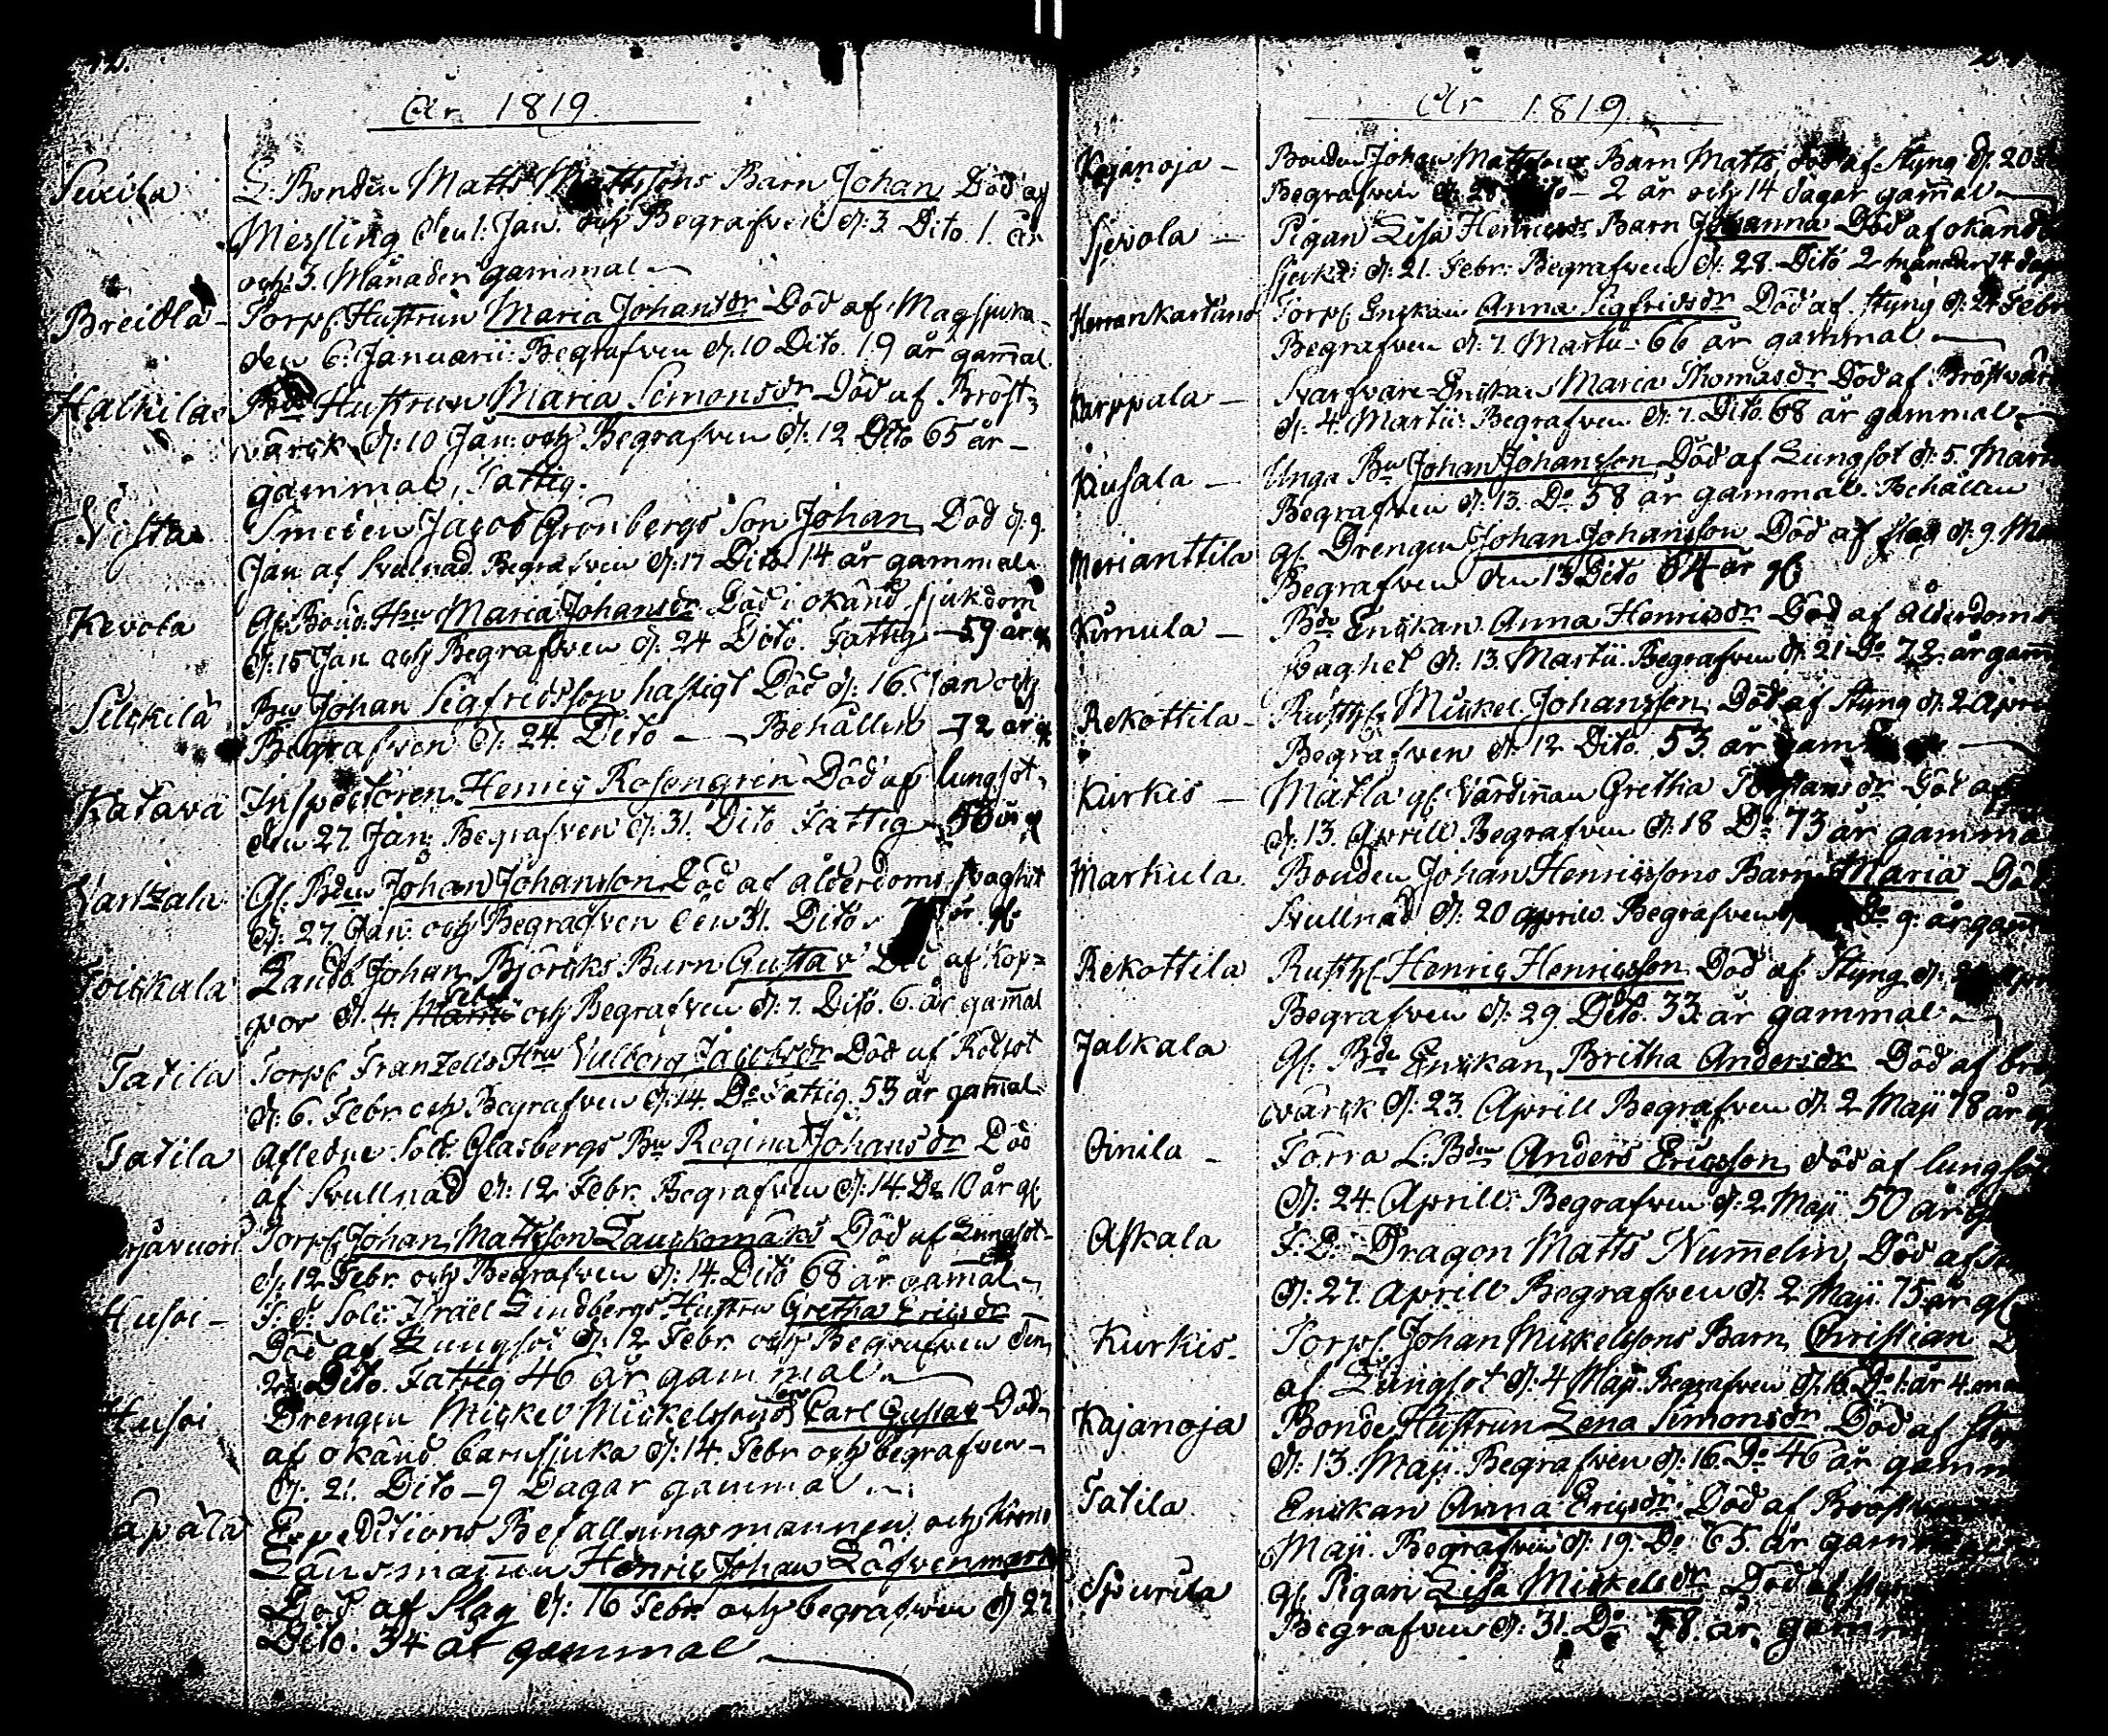 År 1819.
Seukila
L. Bonden Matts Mattssons Barn Johan Död af
Messling den 1. Jan. och Begrafven d: 3 Dito. 1. år
och 3. Månader gammal
Breidla
Torp. Hustrun Maria Johansdr Död af Magsjuka
den 6. Januarii. Begrafven d: 10 Dito. 19 år gam̄al
Hustrun Maria Simonsdr Död af Bröst-
värck d: 10 Jan. och Begrafven d: 12 Dito 65 år
gammal, Fattig.
Vista
Smeden Jacob Grönbergs Son Johan Död d: 9.
Jan af Svullnad. Begrafven d: 17 Dito 14 år gammal
Kevola
Gl. Bond. Hru Maria Johansdr Död i okänd sjukdom
d: 15 Jan och Begrafven d: 24 Dito. Fattig 59 år gl
Johan Sigfridsson hastigt Död d: 16. Jan och
Begrafven d: 24. Dito Behållen 72 år gl
Katava
Inspectoren Henric Rosengren Död af lungsot
den 27 Jan: Begrafven d: 31. Dito Fattig 50 år gl
Gl. Bdn Johan Johansson Död af ålderdoms svaghet
d: 27. Jan: och Begrafven den 31. Dito
Johan Björcks Barn Gustav Död af Kop-
por d: 4. Febr och Begrafven d: 7. Dito. 6. år gam̄al
Tatila
Torp. Franzells Hru Vulborg Jacobsdr Död af Rödsot
d: 6. Febr. och Begrafven d: 14. Do Fattig. 53 år gam̄al
Tatila
Afledne Sold: Glasbergs Bn Regina Johansdr Död
af Svullnad d: 12 Febr. Begrafven d: 14 Do 10 år gl
Torp. Johan Mattsson Död af Lungsot
d: 12 Febr. och Begrafven d: 14. Dito 68 år gam̄al
Husoi
F. d. Sold: Israël Lindbergs Hustru Gretha Ericsdr
Död af Lungsot d: 12 Febr. och Begrafven den
Dito. Fattig 46 år gammal
Husoi
Drengen Mickel Mickelssons son Carl Gustav Död
af okänd barnsjuka d: 14. Febr och begrafven
d: 21. Dito 9 Dagar gammal
Expeditions Befallningsmannen och Krono
Länsman̄en Henric Johan Löfvenmark
Död af Slag d: 16 Febr. och begrafven d 22
Dito. 34 år gammal
År 1819.
Kajanoja
Bonden Johan Mattssons Barn Matts, död af Styng d. 20
Begrafven 2 år och 14 dagar gam̄al
Sjevola
Pigan Lisa Henricsdr Barn Johanna Död af okänd
sjukd: d: 21. Febr: Begrafven d: 28. Dito 2 månader 14 dag
Herrankartano
Torp. Enckan Anna Sigfridsdr Död af Styng d: Febr
Begrafven d. 7. Martii 66 år gammal
Karppala
Svarfvare Enckan Maria Thomasdr Död af Bröstvär
d: 4. Martii. Begrafven d: 7. Dito. 68 år gammal
Kiusala
Unga Bn Johan Johansson Död af Lungsot d: 5. Mar
Begrafven d: 13. Do 58 år gammal. Behållen
Merianttila
gl. Drengen Johan Johansson Död af slag d: 9. Ma
Begrafven den 13 Dito 64 år gl.
Kimula
Bde Enckan Anna Henricsdr Död af ålderdoms
svaghet d: 13. Martii. Begrafven d: 21 Do 72. år gam̄
Rekottila
Rusth. Mickel Johansson Död af Styng d: 2 April
Begrafven d: 12 Dito. 53. år gam
Kurkis
Mätla gl. Värdin̄an Gretha Död af
d: 13. Aprill Begrafven d: 18 Do 73 år gamma
Markula
Bonden Johan Henricssons Barn Maria Död
Svullnad d: 20 Aprill. Begrafven 9. år gam̄
Rekottila
Rusth. Henric Henricsson Död af Styng d:
Begrafven d: 29. Dito. 33 år gammal
Jalkala
Gl. Bde Enckan, Britha Andersdr Död af brö
värck d: 23. Aprill Begrafven d: 2 Maji 78 år
Oinila
Förra L: Bden Anders Ericsson död af lungso
d: 24. Aprill. Begrafven d: 2 Maji 50 år
Askala
F. D. Dragon Matts Num̄elin Död af
d: 27. Aprill Begrafven d: 2 Maji. 75 år gl
Kurkis
Torp. Johan Mickelssons Barn Christian
af Lungsot d: 4 Maji. Begrafven d: 16. Do 1: år 4. m
Kajanoja
Bonde Hustrun Lena Simonsdr Död af Sty
d: 13. Maji. Begrafven d: 16. Do 46 år gamm
Tatila
Enckan Anna Ericsdr Död af Bröst
Maji. Begrafven d: 19. Do 65. år gamm
Spurila
gl. Pigan Lisa Mickelsdr Död af Styn
Begrafven d: 31. Do 58. år gamm